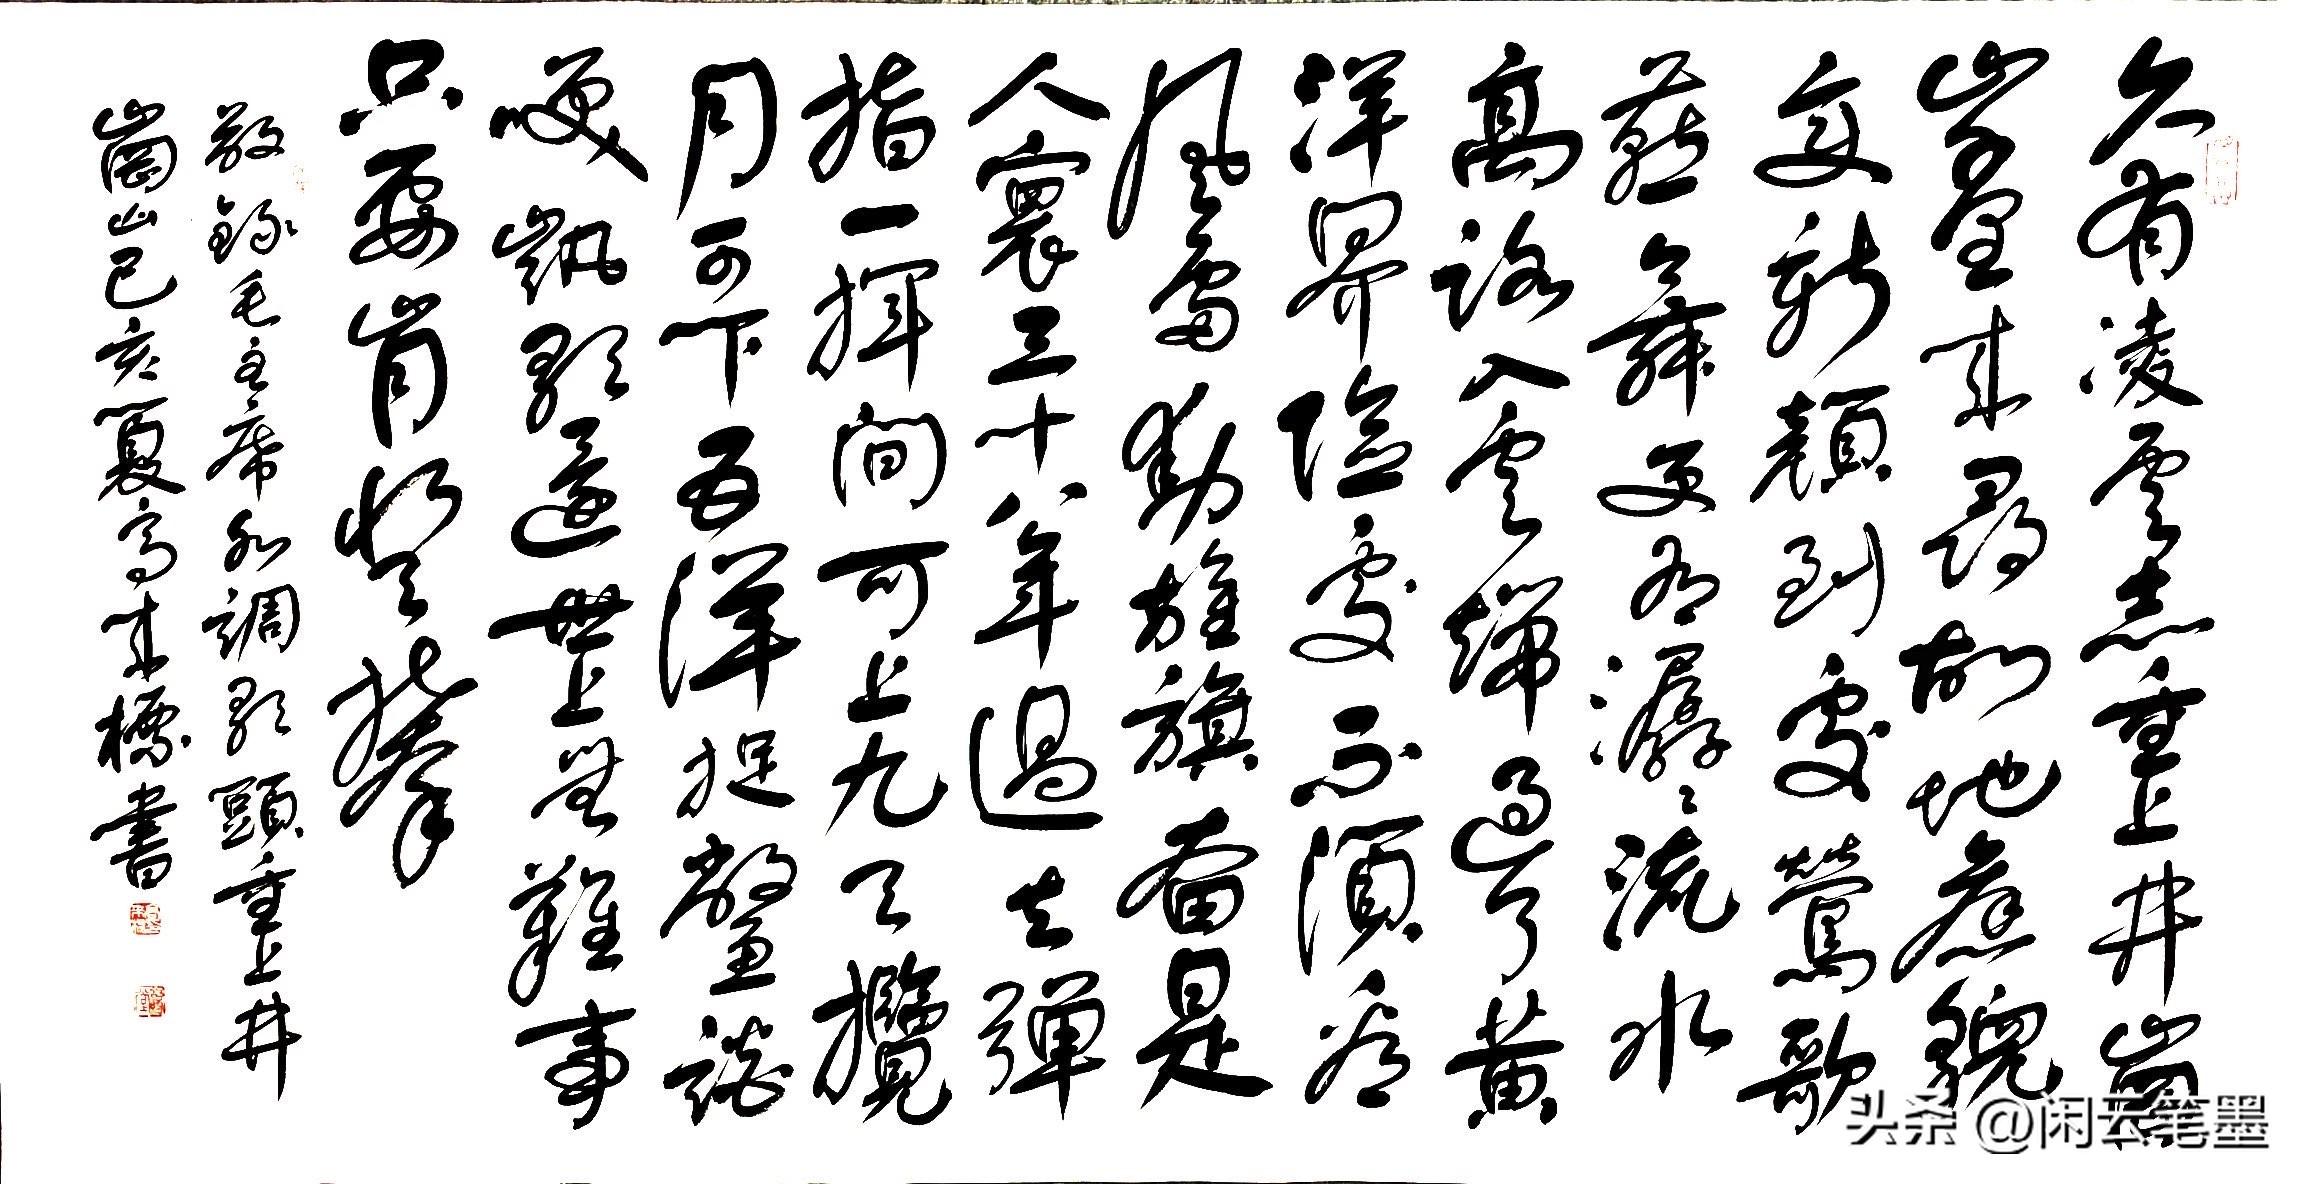 久有凌雲志重上井崗
山千里來尋故地舊貌
變新顏到處鶯歌
燕舞更有潺潺流水
高路入雲端過了黃
洋界險處不須看
風雷動旌旗奮是
人寰三十八年過去彈
指一揮間可上九天攬
月可下五洋捉鱉談
笑凱歌還世上無難事
只要肯登攀
敬錄毛主席水調歌頭重上井
崗山己亥夏高來標書
头条 @闲云笔墨